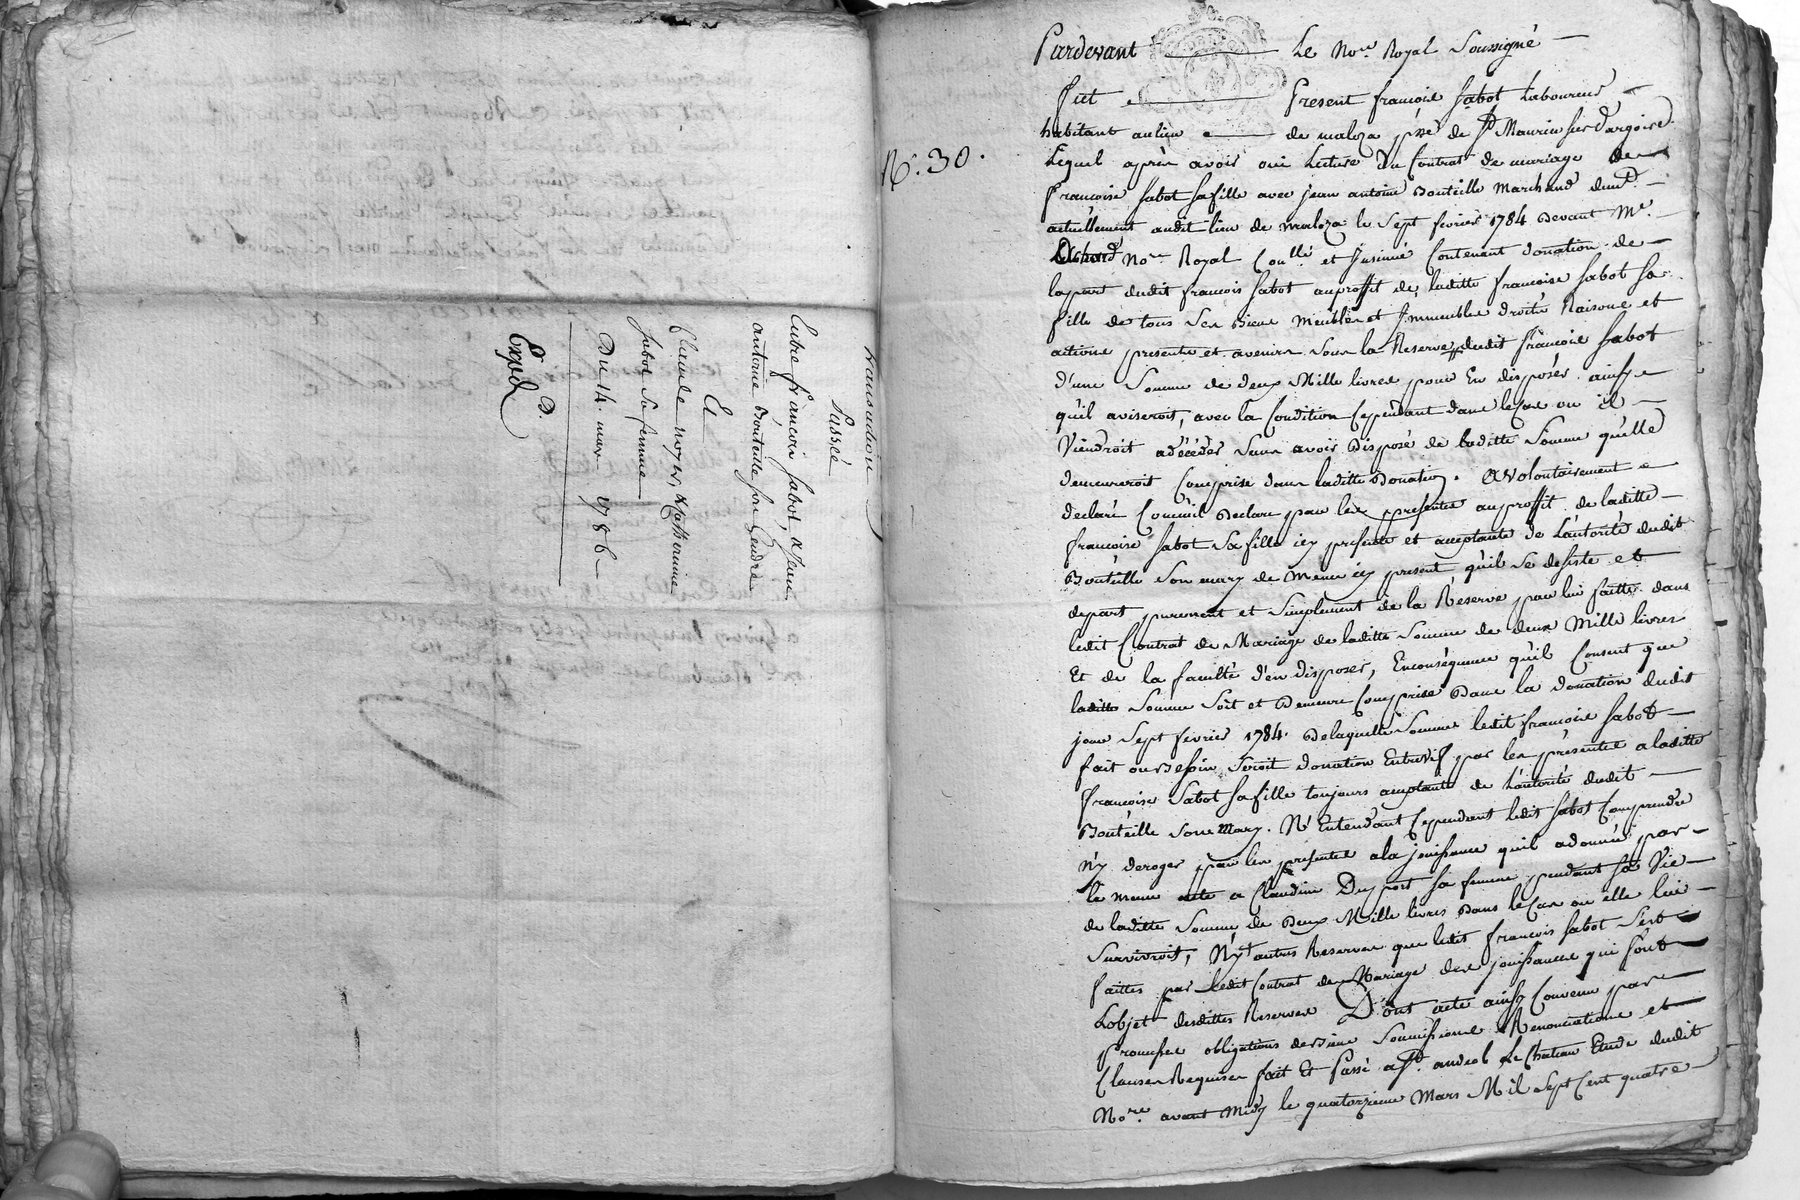 Transaction
Passée
Entre françois Sabot & Jean
antoine Bouteille son Gendre
Et
Claude noyer, & Catherinne
Sabot Sa femme
Du 14. mars 1786
D.
Expéd
N°. 30.
Pardevant Le No.re Royal Soussigné
Fut Present françois Sabot Laboureur
habitant au lieu de maloza psse de St Maurice sur d'argoire
Lequel après avoir oui Lecture Du Contrat de mariage de
françoise Sabot sa fille avec jean antoine Bouteille Marchand dem.t
actuellement audit lieu de maloza le Sept fevrier 1784 Devant M.e
No.re Royal Conllé et Insinué Contenant donation de
la part dudit françois Sabot auproffit de laditte françoise Sabot sa
fille de tous Ses Biens Meubles et Immeubles droits Raisons et
actions presents et avenirs Sous la Reserve dudit françois Sabot
d'une Somme de deux Mille livres pour En disposer ainsy
qu'il aviseroit, avec la Condition Cependant dans le Cas ou il
Viendroit a décéder Sans avoir Disposé de laditte Somme qu'elle
demeureroit Comprise dans laditte Donation. A Volontairement
declaré Comme il Declare par les presentes auproffit de laditte
françoise Sabot Sa fille icy presente et acceptante de L'autorité dudit
Bouteille Son mary de meme icy present qu'il Se desiste et
depart purement et Simplement de la Réserve par lui faitte dans
ledit Contrat de Mariage de laditte Somme de deux Mille livres
Et de la faculté d'en disposer, Enconséquence qu'il Consent que
laditte Somme Soit et Demeure Comprise Dans la donation dudit
jour Sept fevrier 1784. De laquelle Somme ledit françois Sabot
fait ou Besoin Seroit donation Entrevifs par les présentes a laditte
françoise Sabot Sa fille toujours acceptante de L'autorité dudit
Bouteille Son Mary. N'Entendant Cependant ledit Sabot Comprendre
n'y deroger par les presentes a la jouissance qu'il a donnée par
le meme acte a Claudine Duport Sa femme pendant Sa Vie
de laditte Somme de Deux Mille livres Dans le Cas ou elle lui
Survivroit, N'y autres Reserves que ledit françois Sabot S'est
faittes par ledit Contrat de Mariage des jouissances qui font
L'objet desdittes Reserves Dont acte ainsy Convenu par
Promesses obligations de Biens Soumissions Renonciations et
Clauses Requises fait Et Passé a St. andeol Le Chateau Etude dudit
No.re avant Midy le quatorzieme Mars Mil Sept Cent quatre